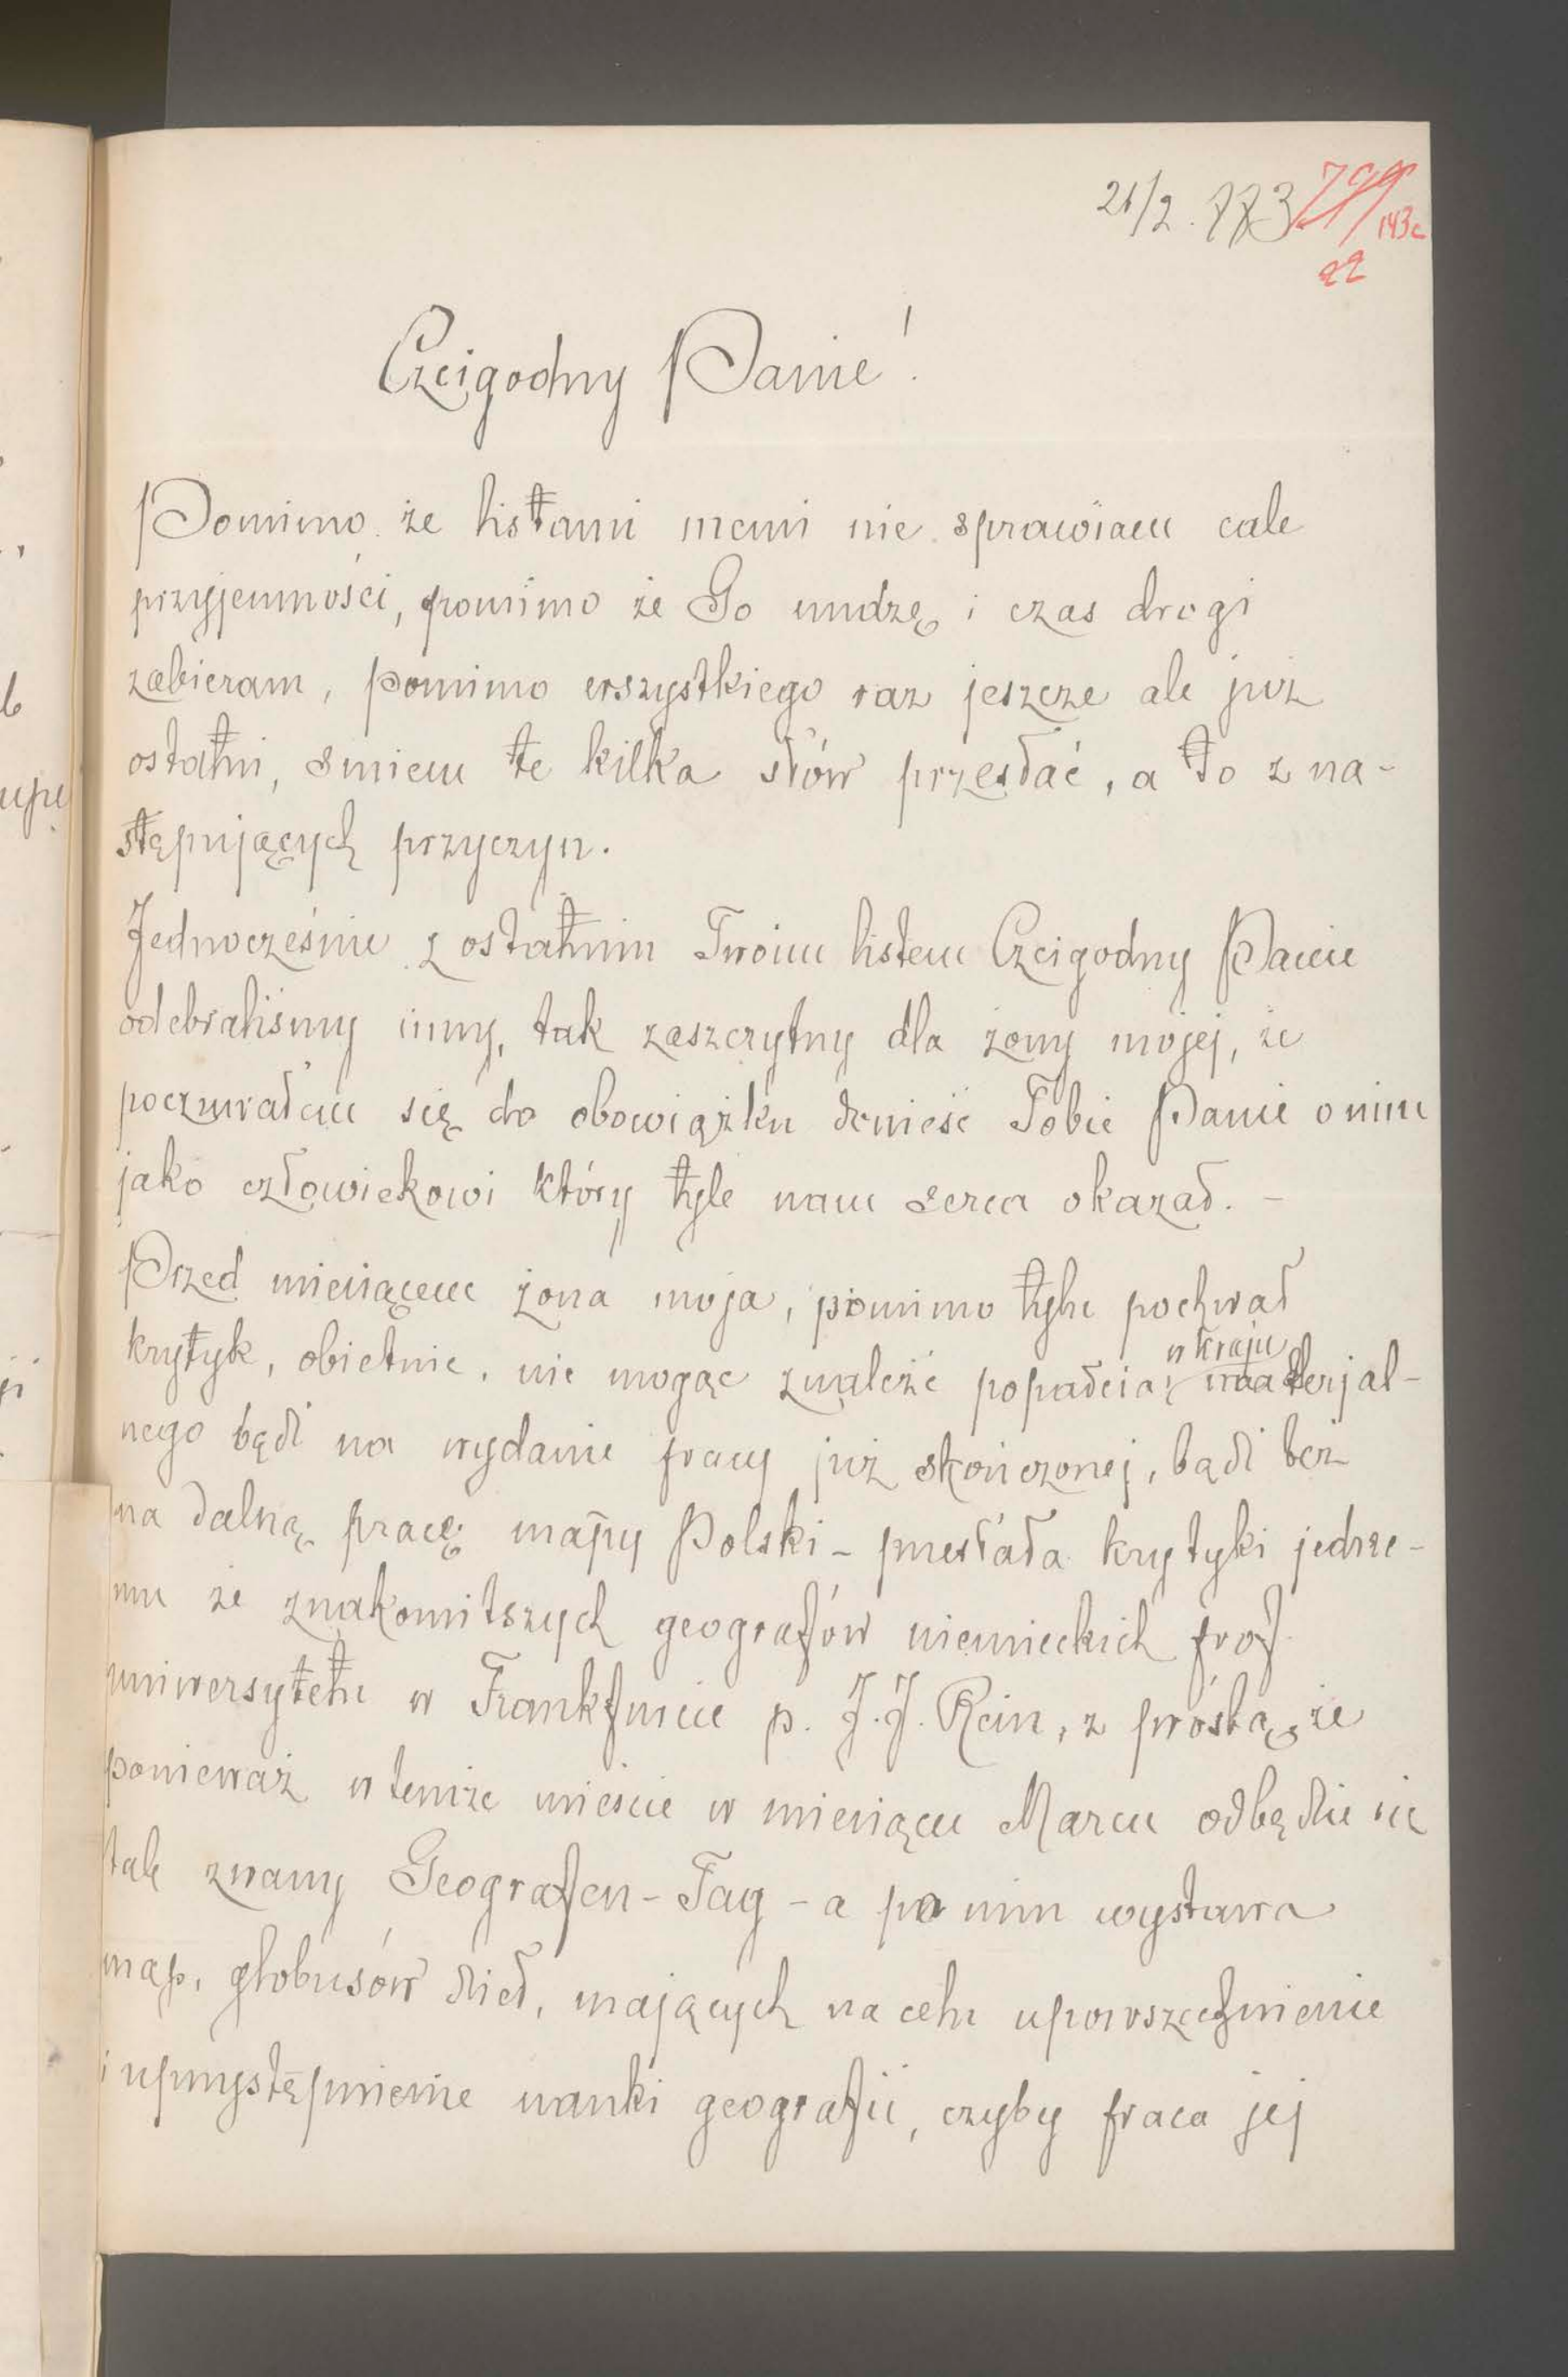 21/2. 83
143c
22
Czcigodny Panie!
Pomimo że listami memi nie sprawiam cale
przyjemności, pomimo że Go nudzę i czas drogi
zabieram, pomimo wszystkiego raz jeszcze ale już
ostatni, śmiem te kilka słów przesłać, a to z na-
stępujących przyczyn.
Jednocześnie z ostatnim Twoim listem Czcigodny Panie
odebraliśmy inny, tak zaszczytny dla żony mojej, że
poczuwałem się do obowiązku donieść Tobie Panie o nim
jako człowiekowi który tyle nam serca okazał. -
Przed miesiącem żona moja, pomimo tylu pochwał
krytyk, obietnic, nie mogąc znaleźć poparcia, w kraju materjal-
nego bądź na wydanie pracy już skończonej, bądź też
na dalszą pracę mapy Polski - przesłała krytyki jedne-
mu ze znakomitszych geografów niemieckich prof.
uniwersytetu w Frankfurcie p. J. J. Rein, z prośbą, że
ponieważ w temże mieście w miesiącu Marcu odbędzie się
tak zwany Geografen-Tag - a po nim wystawa
map, globusów dzieł, mających na celu upowszechnienie
i uprzystępnienie nauki geografii, czyby praca jej